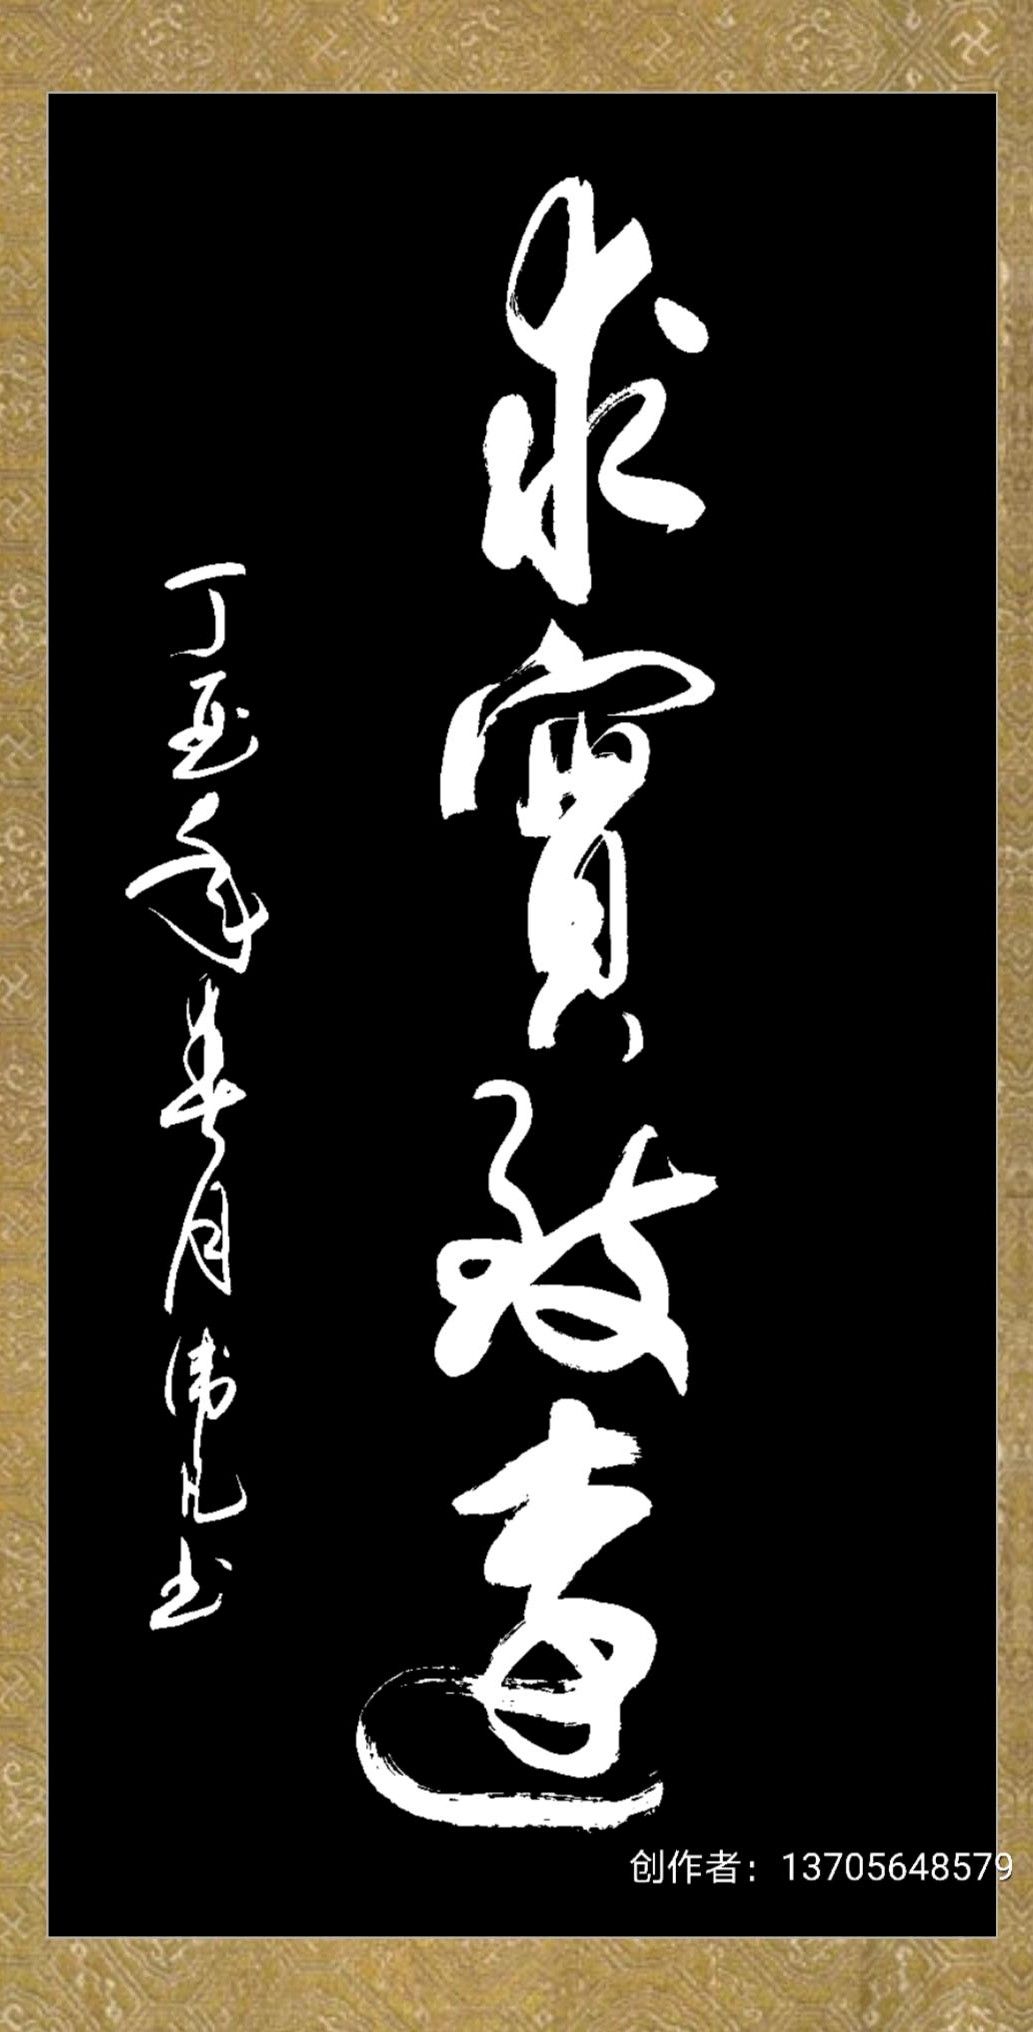 求實致遠
丁酉年春月偉凡书
创作者：13705648579